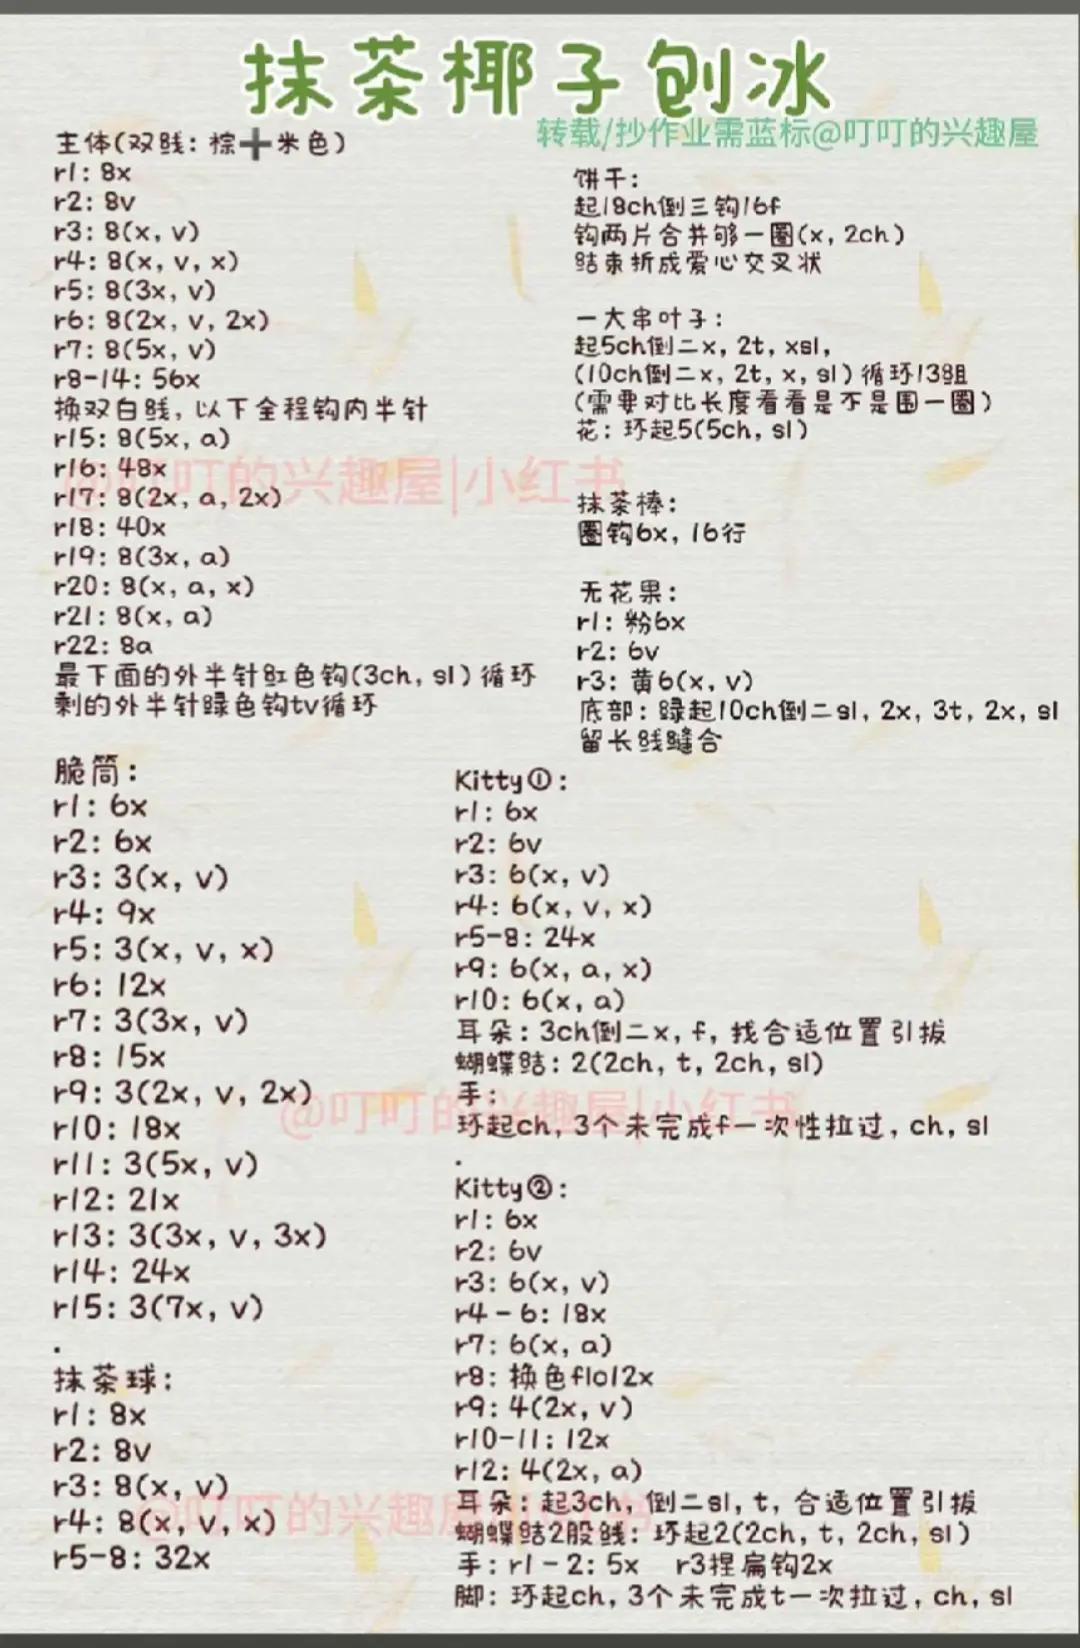 抹茶椰子刨冰
转载/抄作业需蓝标@叮叮的兴趣屋
主体(双线: 棕➕米色)
r1: 8x
r2: 8v
r3: 8(x, v)
r4: 8(x, v, x)
r5: 8(3x, v)
r6: 8(2x, v, 2x)
r7: 8(5x, v)
r8-14: 56x
换双白线, 以下全程钩内半针
r15: 8(5x, a)
r16: 48x
r17: 8(2x, a, 2x)
r18: 40x
r19: 8(3x, a)
r20: 8(x, a, x)
r21: 8(x, a)
r22: 8a
最下面的外半针红色钩(3ch, sl) 循环
剩的外半针绿色钩tv循环
饼干:
起18ch倒三钩16f
钩两片合并够一圈(x, 2ch)
结束折成爱心交叉状
一大串叶子:
起5ch倒二x, 2t, xsl,
(10ch倒二x, 2t, x, sl) 循环13组
(需要对比长度看看是不是围一圈)
花: 环起5(5ch, sl)
抹茶棒:
圈钩6x, 16行
无花果:
r1: 粉6x
r2: 6v
r3: 黄6(x, v)
底部: 绿起10ch倒二sl, 2x, 3t, 2x, sl
留长线缝合
脆筒:
r1: 6x
r2: 6x
r3: 3(x, v)
r4: 9x
r5: 3(x, v, x)
r6: 12x
r7: 3(3x, v)
r8: 15x
r9: 3(2x, v, 2x)
r10: 18x
r11: 3(5x, v)
r12: 21x
r13: 3(3x, v, 3x)
r14: 24x
r15: 3(7x, v)
.
抹茶球:
r1: 8x
r2: 8v
r3: 8(x, v)
r4: 8(x, v, x)
r5-8: 32x
Kitty①:
r1: 6x
r2: 6v
r3: 6(x, v)
r4: 6(x, v, x)
r5-8: 24x
r9: 6(x, a, x)
r10: 6(x, a)
耳朵: 3ch倒二x, f, 找合适位置引拔
蝴蝶结: 2(2ch, t, 2ch, sl)
手:
环起ch, 3个未完成f一次性拉过, ch, sl
.
Kitty②:
r1: 6x
r2: 6v
r3: 6(x, v)
r4-6: 18x
r7: 6(x, a)
r8: 换色flo12x
r9: 4(2x, v)
r10-11: 12x
r12: 4(2x, a)
耳朵: 起3ch, 倒二sl, t, 合适位置引拔
蝴蝶结2股线: 环起2(2ch, t, 2ch, sl)
手: r1-2: 5x r3捏扁钩2x
脚: 环起ch, 3个未完成t一次拉过, ch, sl
@叮叮的兴趣屋|小红书
@叮叮的兴趣屋|小红书
@叮叮的兴趣屋|小红书